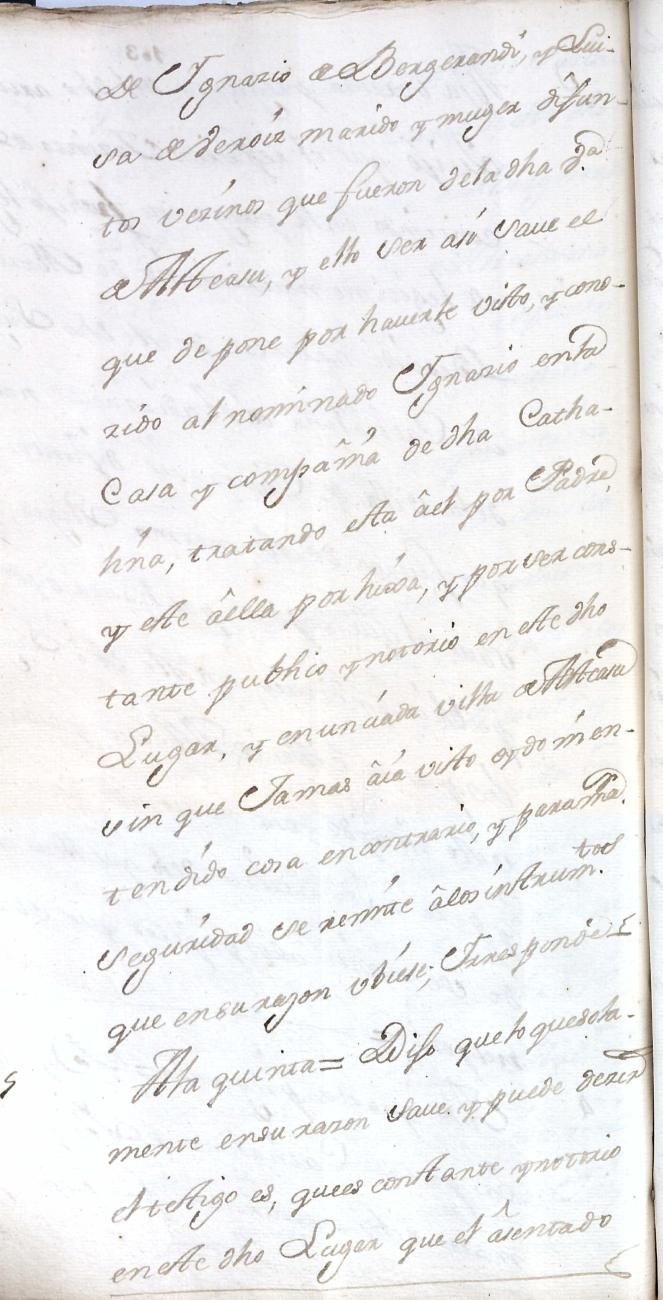 De Ignazio de Bergerandi, y Lui-
sa de deroiz marido y muger difun-
tos vezinos que fueron dela dha va
de Alteasu, y ello ser asi save el
que depone por haverle visto, y cono-
zido al nominado Ignazio enla
Casa y compañia de dha Catha-
lina, tratando esta âel por Padre,
y este âella por hixa, y por ser cons-
tante publico ynotorio en este dho
Lugar, y enunciada villa de Alteasu
sin que Jamas âia visto oydo ni en-
tendido cosa encontrario, y para mã.
seguridad se remite âlos instrum.tos
que ensu razon ubiese; Yresponde
Ala quinta= Dijo que lo quesola-
mente ensu razon save y puede dezir
el testigo es, quees constante ynotorio
eneste dho Lugar que el âsentado